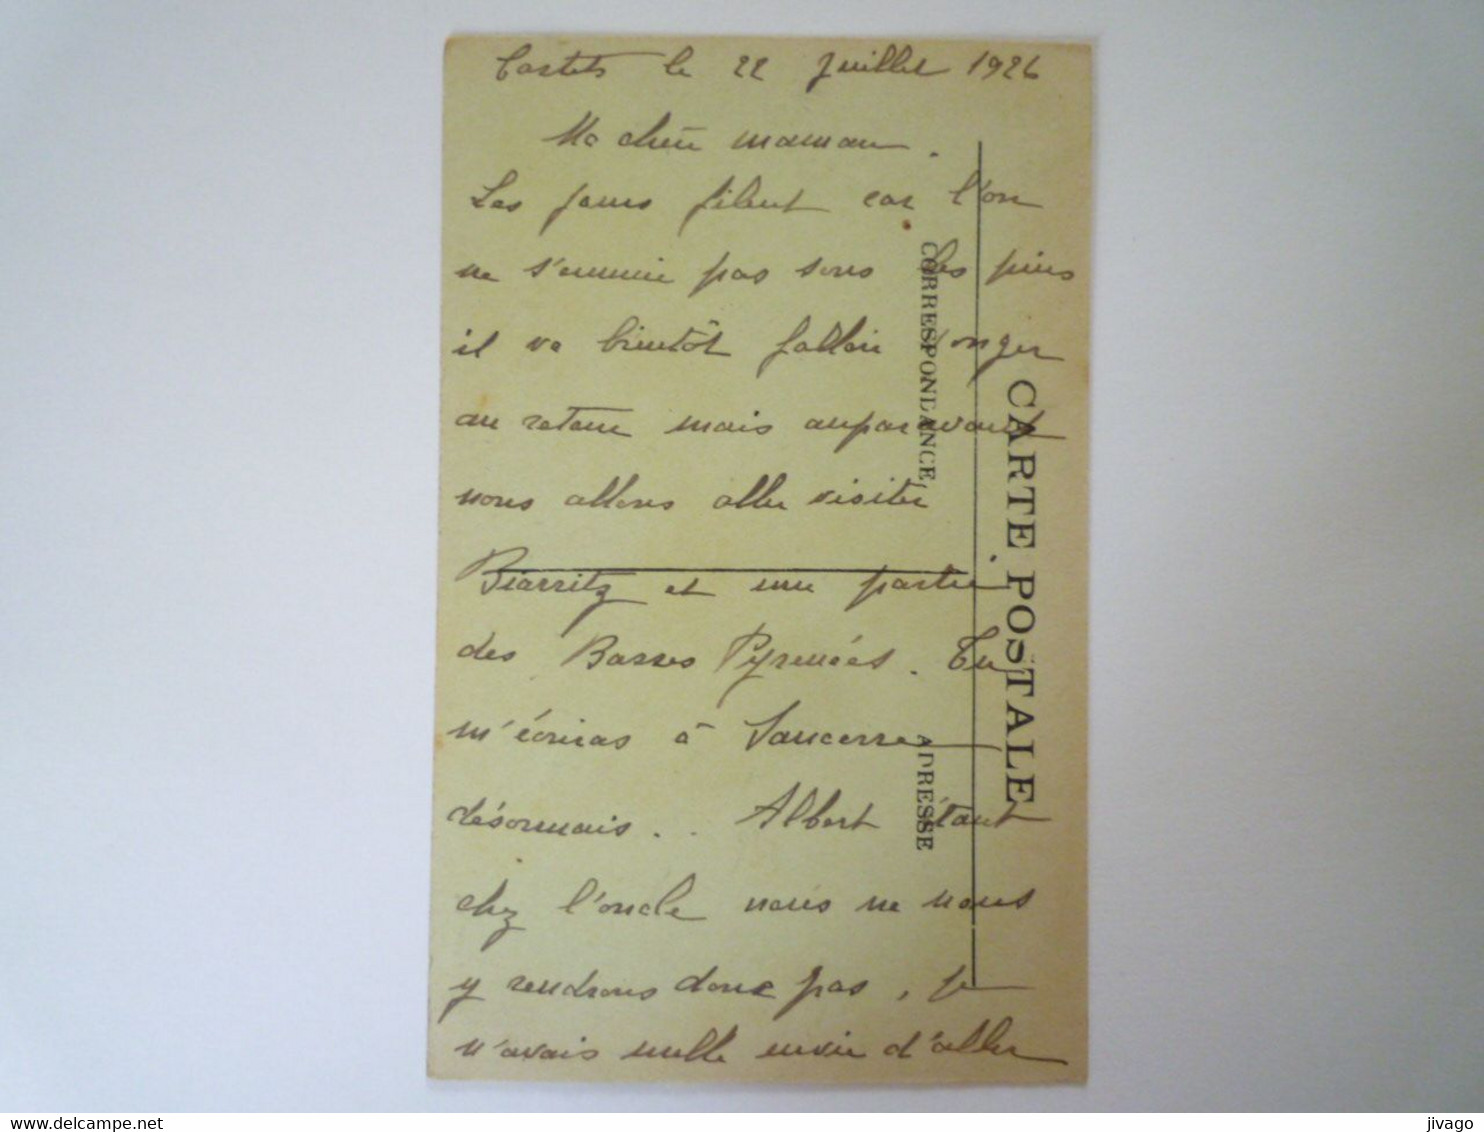 Castets le 22 Juillet 1926
Ma chère maman.
Les jours filent car l'on
ne s'ennuie pas sous les pins
il va bientôt falloir songer
au retour mais auparavant
nous allons aller visiter
Biarritz et une partie
des Basses Pyrenées. Tu
m'écriras à Sancerre
désormais.. Albert étant
chez l'oncle nous ne nous
y rendrons donc pas, je
n'avais nulle envie d'aller
CARTE POSTALE
CORRESPONDANCE,
ADRESSE
delcampe.net
jivago